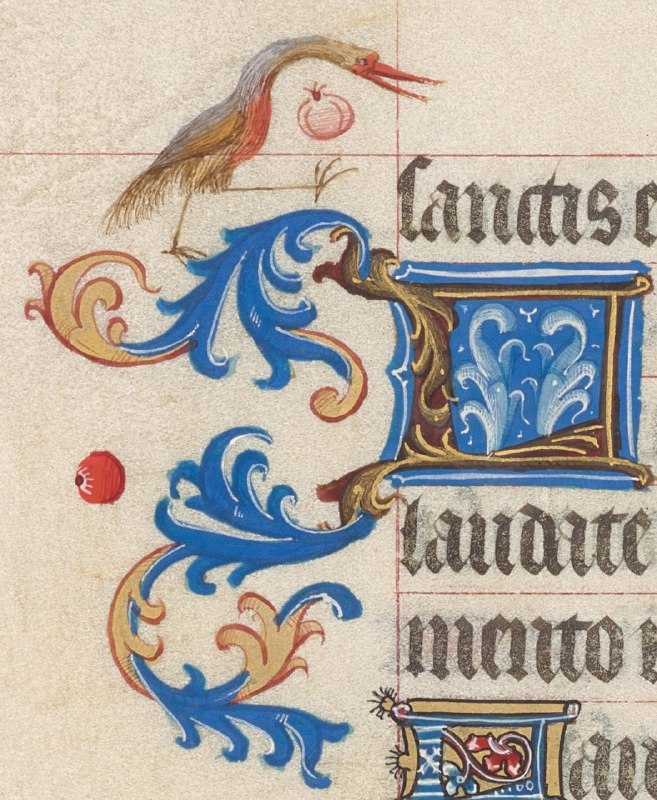 sanctis e
L
laudate
mento v
Lau